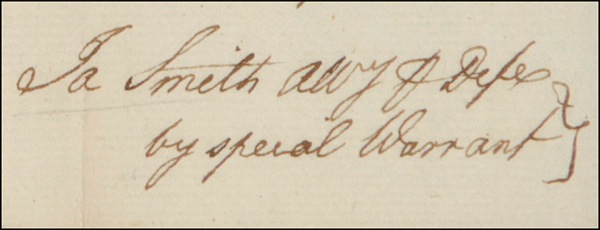 Ja Smith Atty p Defe
by special Warrant }